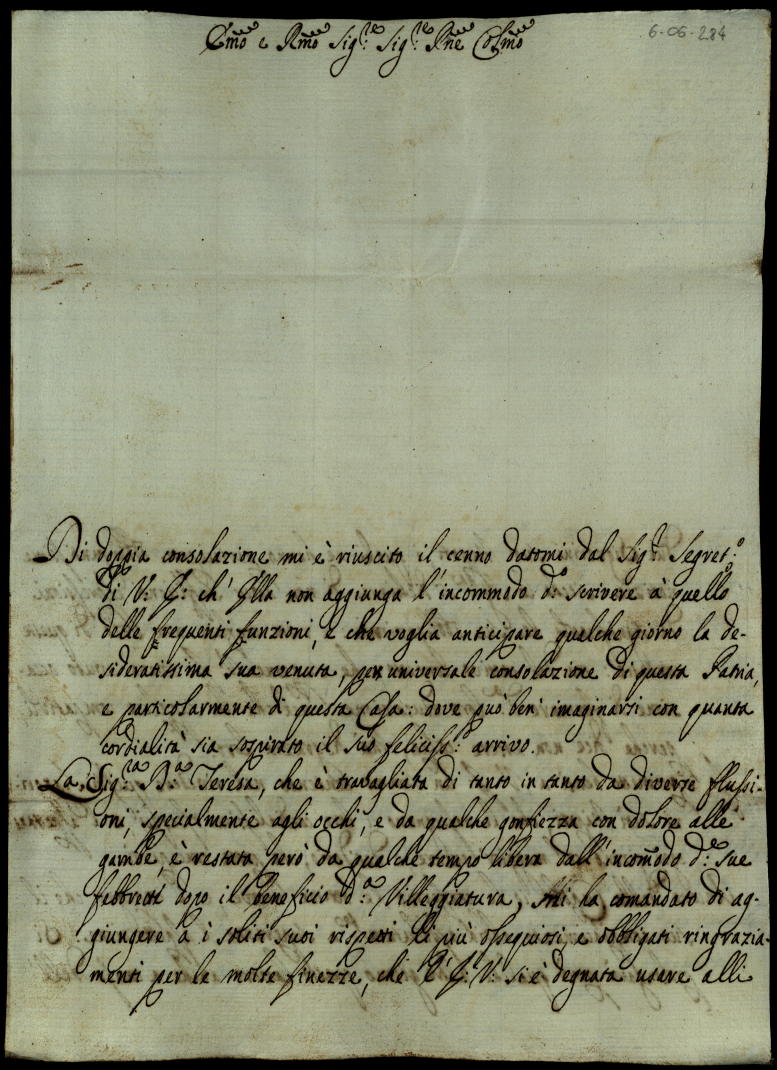 6-06-284
Emõ e Rmõ Sig.re Sig.re Pne Colmõ
Di doppia consolazione mi è riuscito il cenno datomi dal Sig.r Segret.o
di V: E: ch' Ella non aggiunga l'incommodo d.o scrivere à quello
delle frequenti funzioni, e che voglia anticipare qualche giorno la de-
sideratissima sua venuta, per universale consolazione di questa Patria,
e particolarmente di questa Casa: dove può ben' imaginarsi con quanta
cordialità sia sospirato il suo feliciss.o arrivo.
La Sig.ra B.a Teresa, che è travagliata di tanto in tanto da diverse flussi-
oni, specialmente agli occhi, e da qualche gonfiezza con dolore alle
gambe, è restata però da qualche tempo libera dall'incom̃odo d.e sue
febbrette dopo il beneficio d.a Villeggiatura, Mi ha comandato di ag-
giungere à i soliti suoi rispetti li più ossequiosi, e obbligati ringrazia-
menti per le molte finezze, che l'E: V: si è degnata usare alli